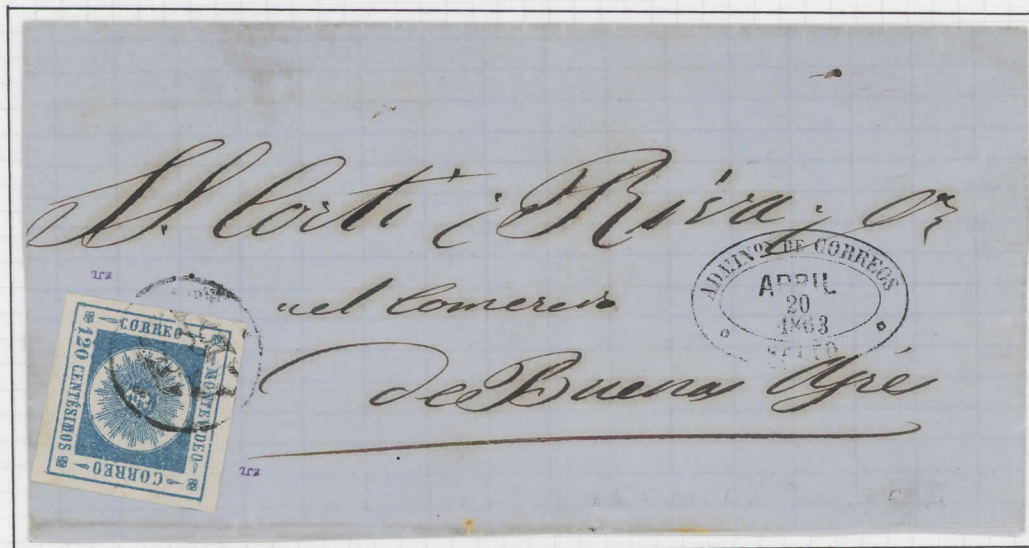 S. Corti y Riva; or
del Comercio
de Buenos Ayres
ADMINON DE CORREOS
ABRIL
20
1863
SALTO
CORREO
MONTEVIDEO
CORREO
120 CENTÉSIMOS
EJL
EJL